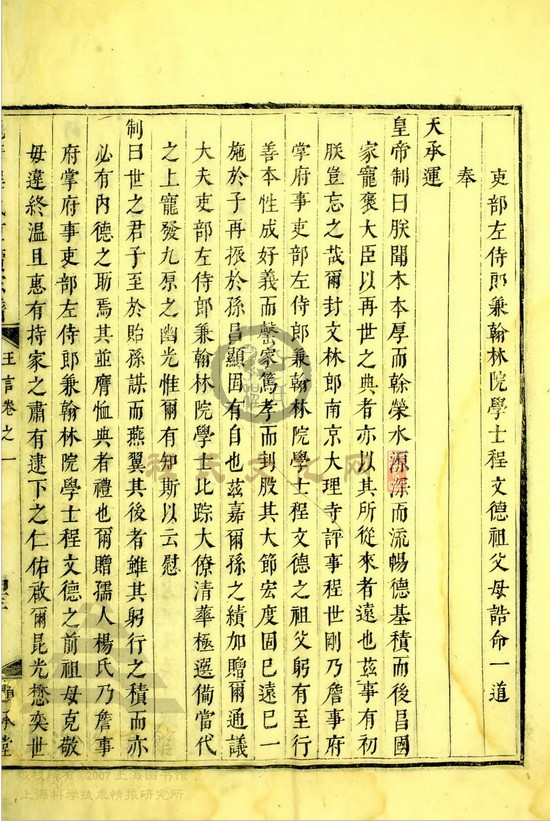 吏部左侍郎兼翰林院學士程文德祖父母誥命一道
奉
天承運
皇帝制曰朕聞木本厚而榦榮水源深而流暢德基積而後昌國
家寵褒大臣以再世之典者亦以其所從來者遠也茲事有初
朕豈忘之哉爾封文林郎南京大理寺評事程世剛乃詹事府
掌府事吏部左侍郎兼翰林院學士程文德之祖父躬有至行
善本性成好義而罄家篤孝而刲股其大節宏度固已遠巳一
施於子再振於孫昌顯固有自也茲嘉爾孫之績加贈爾通議
大夫吏部左侍郎兼翰林院學士比踪大僚清華極選備當代
之上寵發九原之幽光惟爾有知斯以云慰
制曰世之君子至於貽孫謀而燕翼其後者雖其躬行之積而亦
必有內德之助焉其並膺恤典者禮也爾贈孺人楊氏乃詹事
府掌府事吏部左侍郎兼翰林院學士程文德之前祖母克敬
毋違終溫且惠有持家之肅有逮下之仁佑啟爾昆光懋奕世
王言卷之一
程氏文化网
版权所有©2007上海图书馆
上海科学技术情报研究所